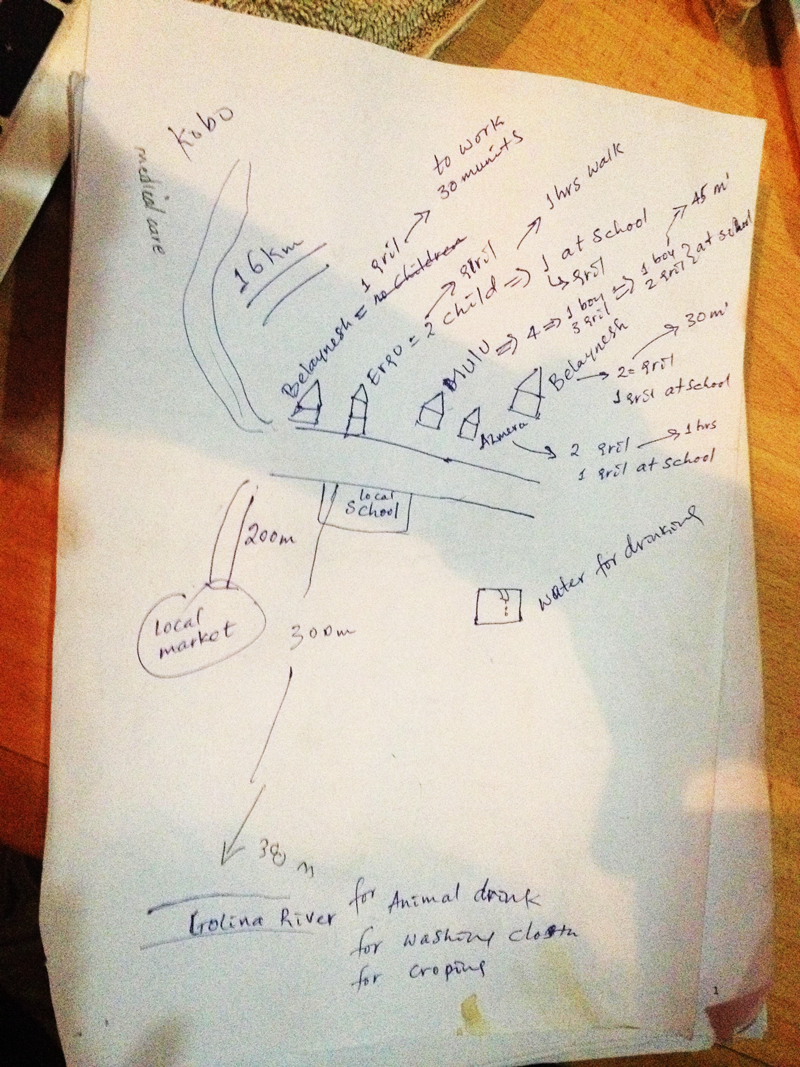 Kobo
medical care
16km
Belaynesh = no children
1 gril
to work
30 munits
Ergo = 2 child => 1 at school
gril
1hrs walk
gril
Mulu => 4 => 1 boy => 1 boy
3 gril 2 gril } at school
45 m'
Belaynesh
2 = gril
1 gril at school
30 m'
Azmera
2 gril
1 gril at school
1hrs
local
school
200m
local
market
300m
water for drinking
Golina River
for Animal drink
for washing
for croping
1